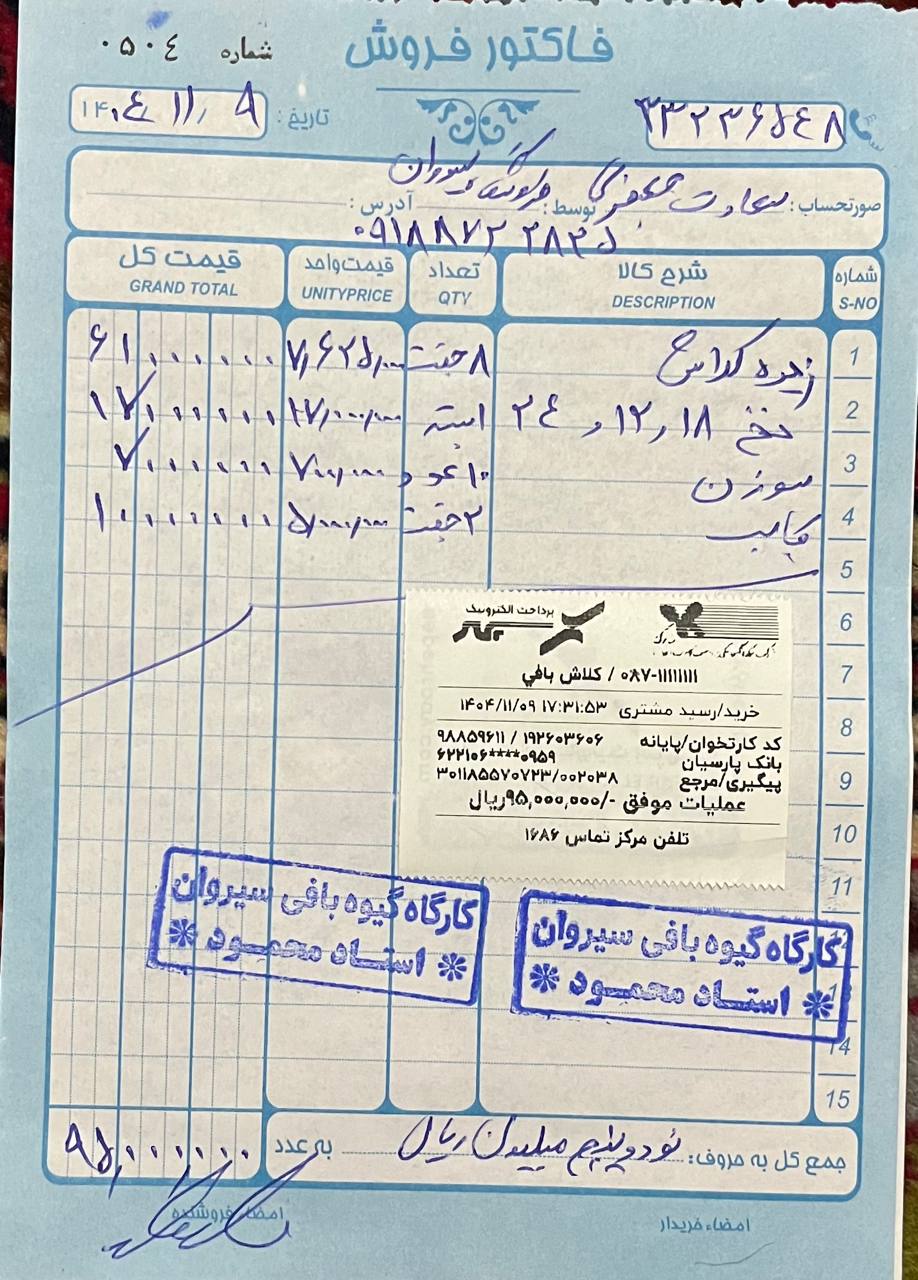 فاکتور فروش
شماره ۰۵۰٤
تاریخ: ۱۴۰٤/۱۱/۰۹
۳۳۲۳۶۵٤۸
صورتحساب: سعادت جعفری توسط: فروشگاه سیروان آدرس:
۰۹۱۸۸۷۲۲۸۳۵
شماره S-NO شرح کالا DESCRIPTION تعداد QTY قیمت واحد UNITYPRICE قیمت کل GRAND TOTAL
1 زیره کلاش ۸ جفت ۷,۶۲۵,۰۰۰ ۶۱,۰۰۰,۰۰۰
2 نخ ۱۸ و ۱۲ و ۲٤ ۱ بسته ۱۷/۰۰۰/۰۰۰ ۱۷,۰۰۰,۰۰۰
3 سوزن ۱۰ عدد ۷۰۰/۰۰۰ ۷,۰۰۰,۰۰۰
4 قالب ۲ جفت ۵/۰۰۰/۰۰۰ ۱۰,۰۰۰,۰۰۰
5
6
7
8
9
10
11
14
15
پرداخت الکترونیک
۰۸۷-۱۱۱۱۱۱۱۱ / کلاش بافي
خرید/رسید مشتری ۱۴۰۴/۱۱/۰۹ ۱۷:۳۱:۵۳
کد کارتخوان/پایانه ۱۹۲۶۰۳۶۰۶ / ۹۸۸۵۹۶۱۱
بانک پارسیان ۶۲۲۱۰۶****۰۹۵۹
پیگیری/مرجع ۳۰۱۱۸۵۵۷۰۷۲۳/۰۰۲۰۳۸
عملیات موفق -/۹۵,۰۰۰,۰۰۰ریال
تلفن مرکز تماس ۱۶۸۶
کارگاه گیوه بافی سیروان
استاد محمود
کارگاه گیوه بافی سیروان
استاد محمود
جمع کل به حروف: نود و پنج میلیون ریال به عدد ۹۵,۰۰۰,۰۰۰
امضاء خریدار
امضاء فروشنده